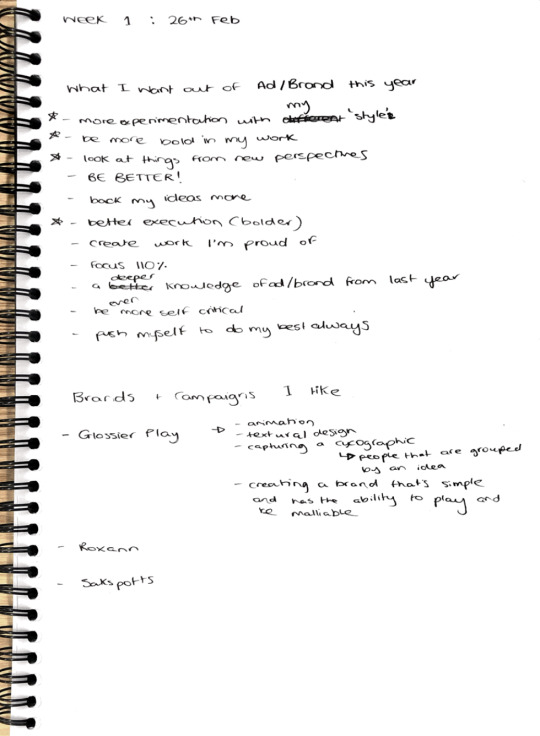 WEEK 1 : 26th Feb
What I want out of Ad/Brand this year
my
☆ - more experimentation with different 'style's
☆ - be more bold in my work
☆ - look at things from new perspectives
- BE BETTER!
- back my ideas more
☆ - better execution (bolder)
- create work I'm proud of
- Focus 110%
deeper
- a better knowledge of ad/brand from last year
ever
- be more self critical
- push myself to do my best always
Brands + Campaigns I like
- Glossier Play → - animation
- textural design
- capturing a cycographic
↳ people that are grouped
by an idea
- creating a brand that's simple
and has the ability to play and
be malliable
- Roxann
- Sakspotts